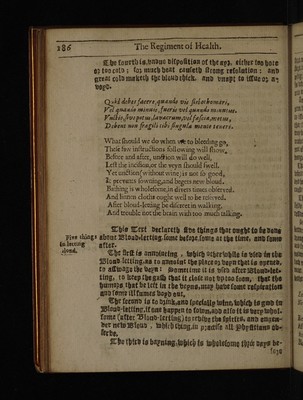 186 The Regiment of Health.
The fourth is, undue disposition of the ayr, either too hote
or too cold; for much heat causeth strong resolution: and
great cold maketh the bloud thick, and unapt to issue or a-
voyd.
Quid debes facere, quando vis fleubothomari,
Vel quando minuis, fueris vel quando minutus.
Vnctio, sive potus, lavacrum, vel fascia, motus,
Debent non fragili tibi singula mente teneri.
What should we do when we to bleeding go,
These few instructions following will show,
Before and after, unction will do well,
Left the incision, or the veyn should swell.
Yet unction without wine is not so good,
It prevents sowning, and begets new blood.
Bathing is wholesome, in divers times observed.
And linnen clothes ought well to be reserved.
After blood-letting be discreet in walking,
And trouble not the brain with too much talking.
Five things in letting bloud.
This Text declareth five things that ought to be done
about Bloud-letting, some before, some at the time, and some
after.
The first is annointing, which otherwhile is used in the
Bloud-letting, as to annoint the place or veyn that is opened,
to asswage the payn: sometime it is used after Bloud-let-
ting, to keep the gash that it close not up too soon, that the
humors that be left in the veyns, may have some respiration
and some ill fumes voyd out.
The second is to drink, and specially wine, which is good in
Bloud-letting, if one happen to swoon, and also it is very whol-
some (after Bloud-letting) to revive the spirits, and engen-
der new Bloud, which thing in practise all Physitians ob-
serve.
The third is bayning, which is wholesome three days be-
fore